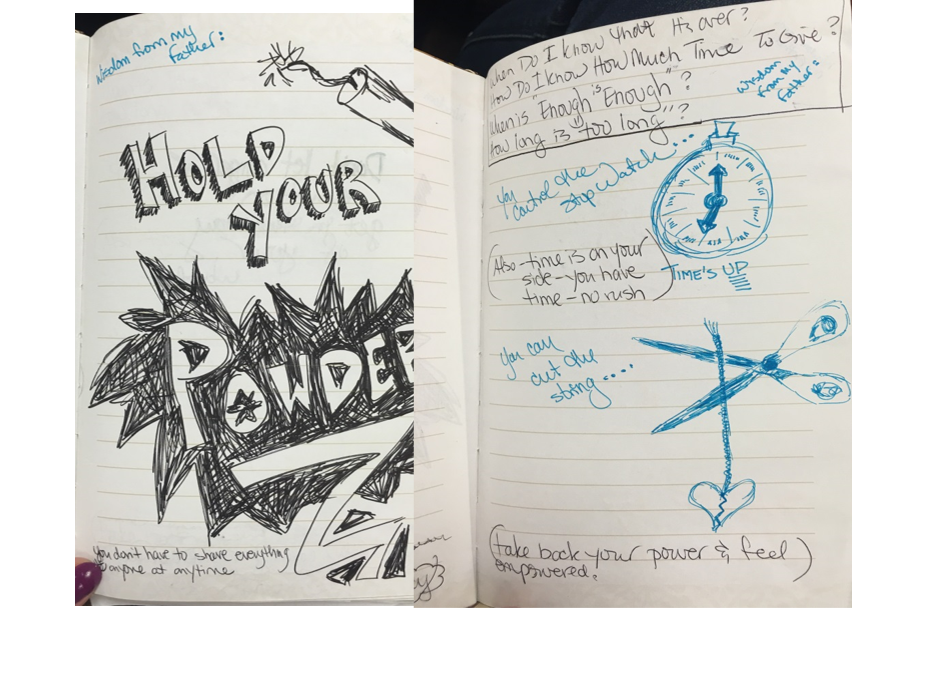 wisdom from my
father:
HOLD
YOUR
POWDE
you don't have to share everything
anyone at anytime
When Do I know that its over?
How Do I know How Much Time To Give?
When is "Enough is Enough"?
How long is "too long"?
wisdom
from my
father:
you
control the
stop watch...
TIME'S UP
(Also - time is on your
side - you have
time - no rush)
you can
cut the
string....
(take back your power & feel
empowered.)